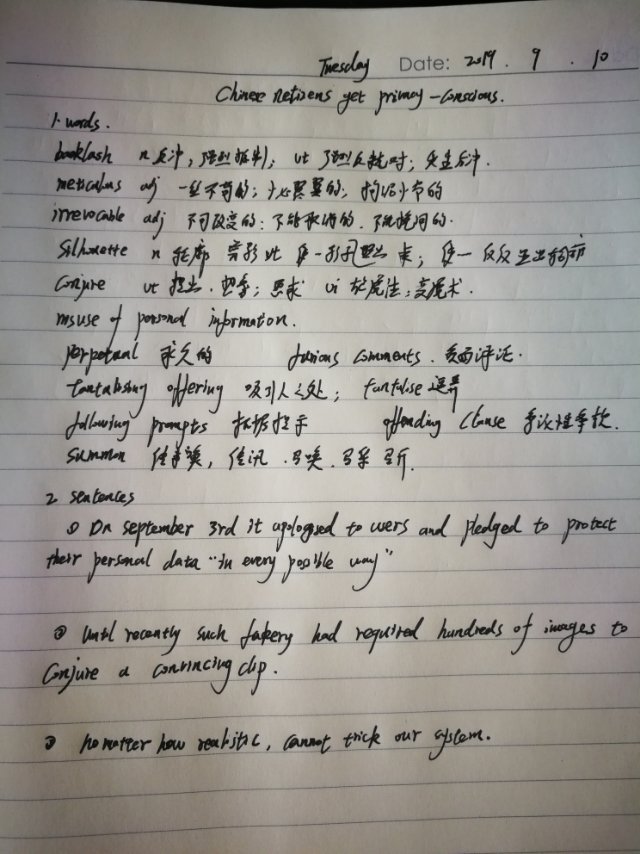 Tuesday Date: 2019 . 9 . 10
Chinese netizens get privacy-conscious.
1. words.
backlash n 反冲, 强烈抵制; vt 强烈反对; 发生后冲.
meticulous adj 一丝不苟的; 小心翼翼的; 拘泥小节的
irrevocable adj 不可改变的; 不能取消的. 不能挽回的.
Silhouette n 轮廓 剪影 vt 使
Conjure vt 想象; 恳求 vi 施魔法; 变魔术.
misuse of personal information.
perpetual 永久的 furious comments.
tantalising offering 吸引人之处; tantalise
following prompts 根据提示 offending clause 条款.
Summon 传唤, 传讯. 召唤. 召集
2 sentences
① On september 3rd it apologosed to users and pledged to protect
their personal data "in every possible way"
② Until recently such fakery had required hundreds of images to
Conjure a convincing clip.
③ No matter how realistic, cannot trick our system.